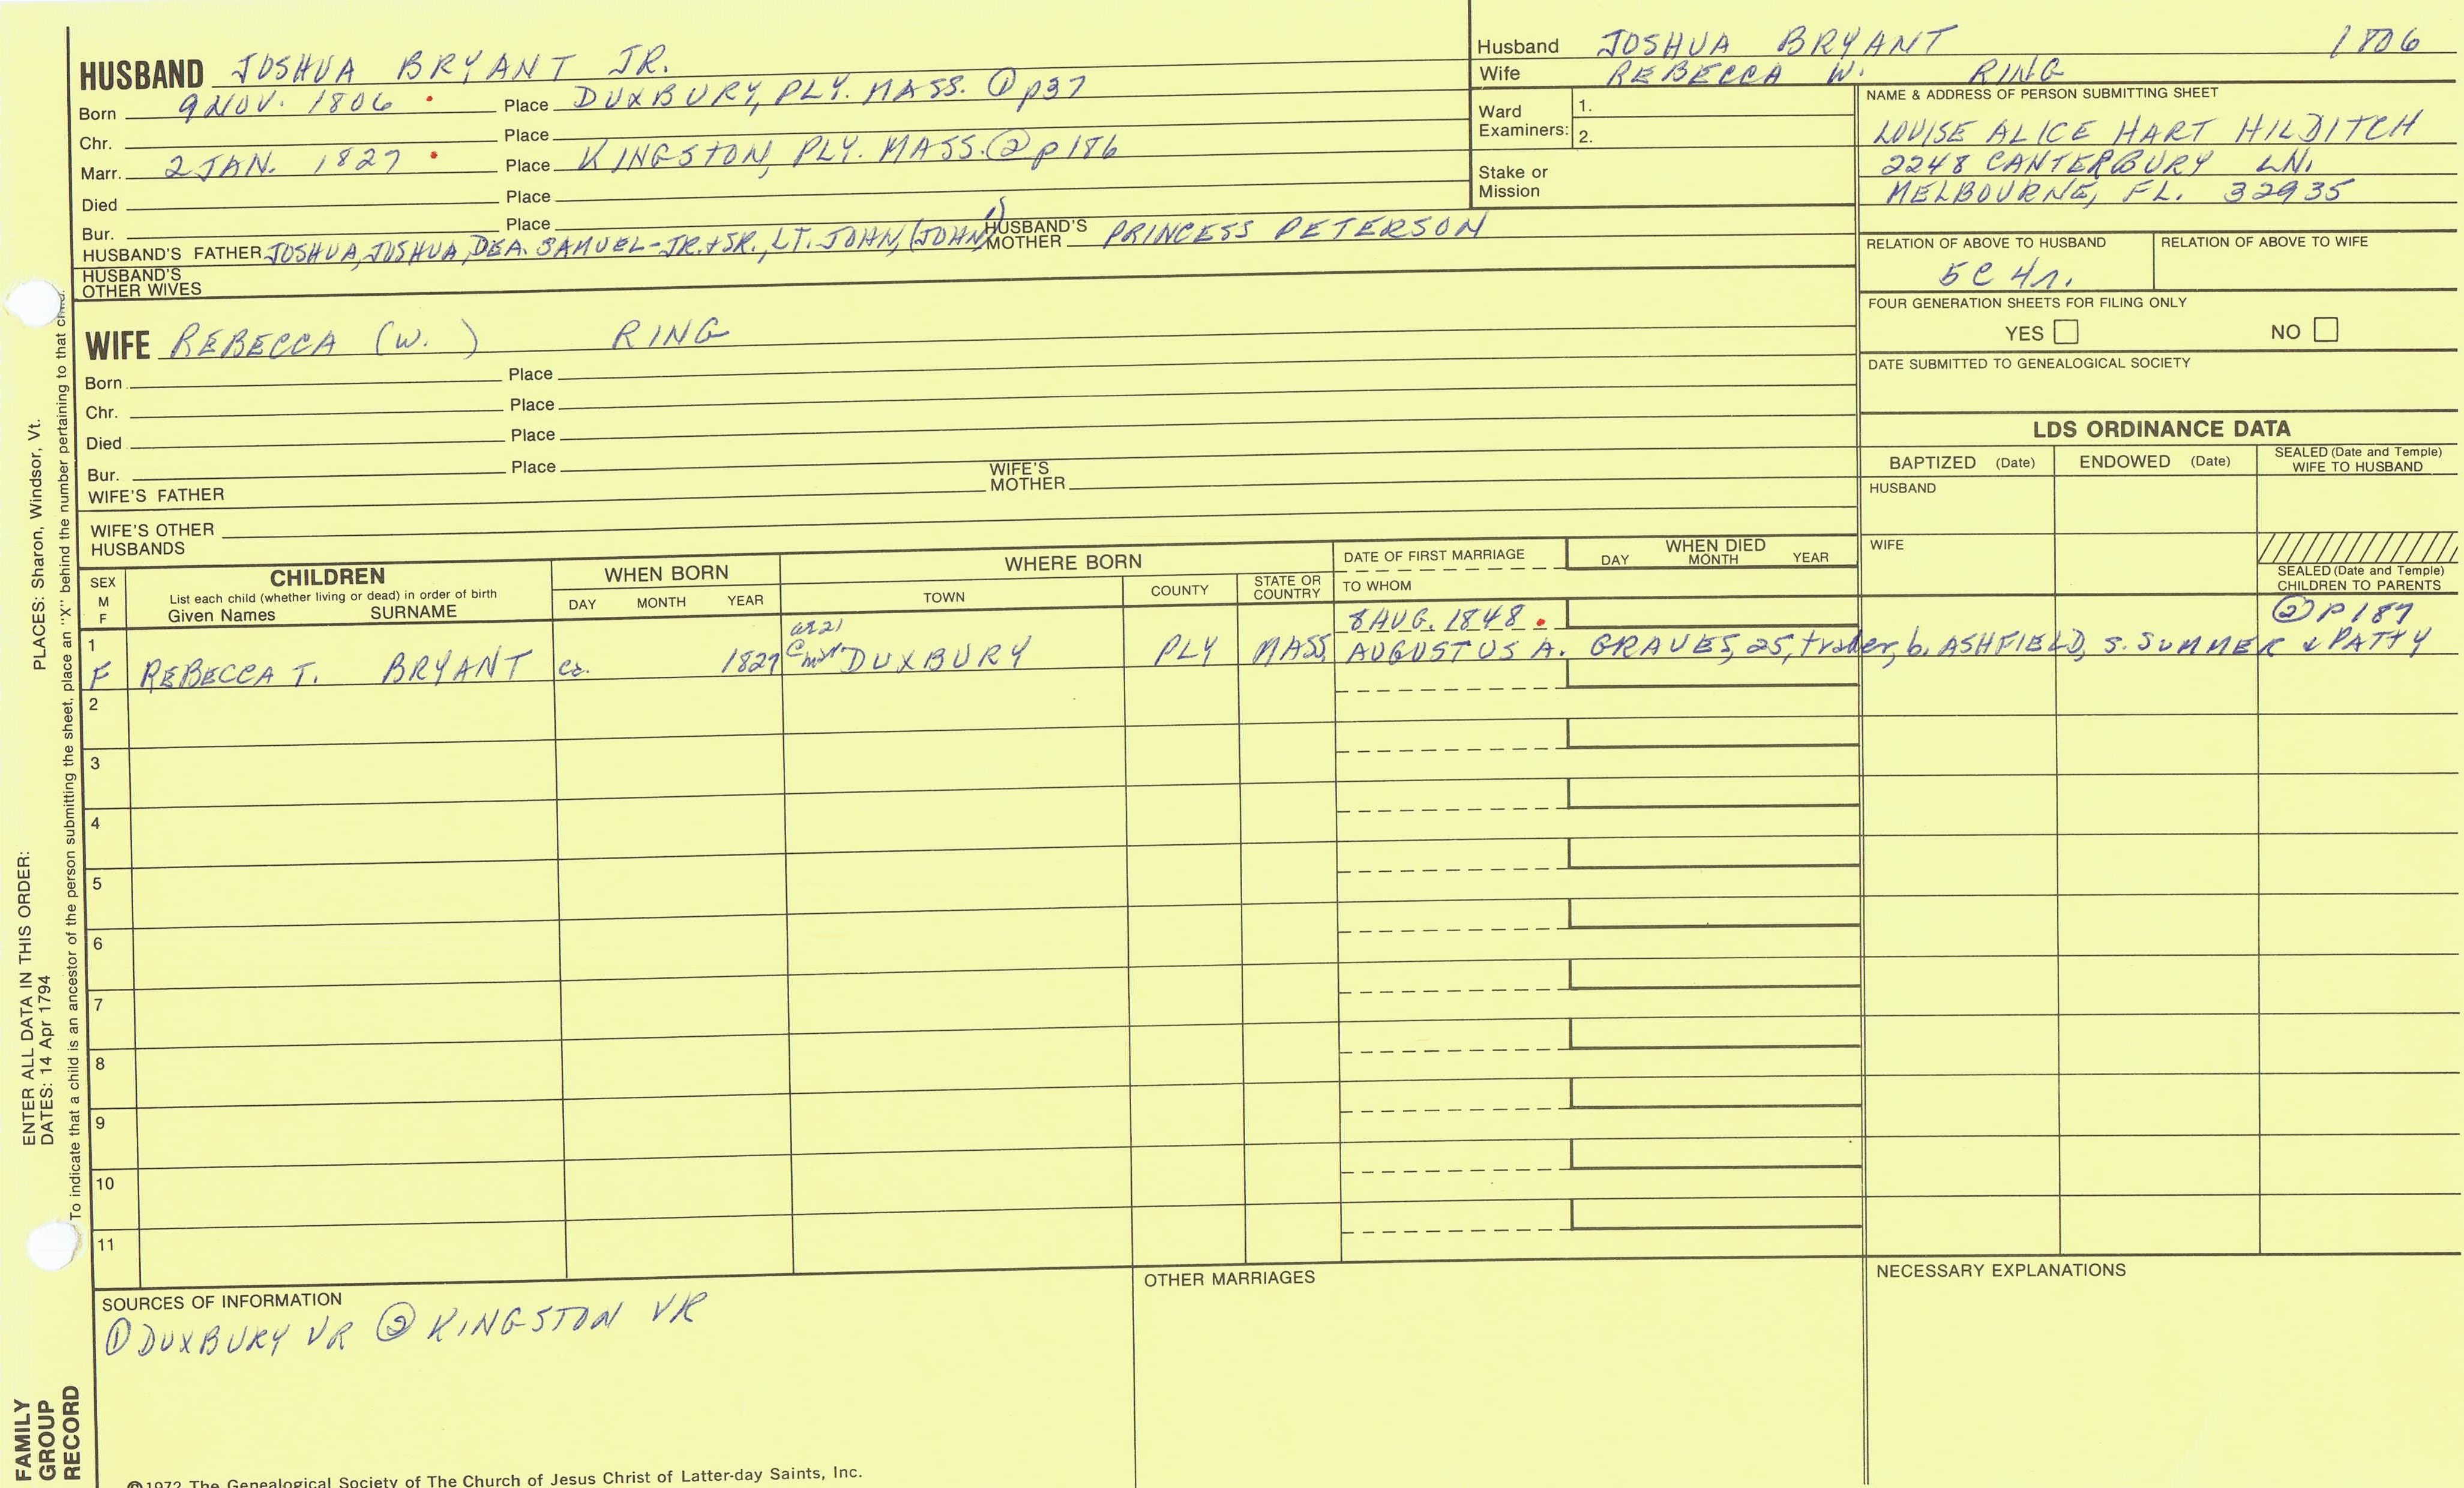 HUSBAND JOSHUA BRYANT JR.
Born 9 NOV. 1806 Place DUXBURY, PLY. MASS. ① p37
Chr. Place
Marr. 2 JAN. 1827 Place KINGSTON, PLY. MASS. ② p186
Died Place
Bur. Place
HUSBAND'S FATHER JOSHUA, JOSHUA, DEA. SAMUEL-JR.+SR., LT. JOHN, (JOHN) HUSBAND'S MOTHER PRINCESS PETERSON
HUSBAND'S OTHER WIVES
Husband JOSHUA BRYANT 1806
Wife REBECCA W. RING
Ward Examiners: 1.
2.
Stake or Mission
NAME & ADDRESS OF PERSON SUBMITTING SHEET
LOUISE ALICE HART HILDITCH
2248 CANTERBURY LN.
MELBOURNE, FL. 32935
RELATION OF ABOVE TO HUSBAND RELATION OF ABOVE TO WIFE
5C 4r.
FOUR GENERATION SHEETS FOR FILING ONLY
YES NO
DATE SUBMITTED TO GENEALOGICAL SOCIETY
WIFE REBECCA (W. ) RING
Born Place
Chr. Place
Died Place
Bur. Place
WIFE'S FATHER WIFE'S MOTHER
WIFE'S OTHER HUSBANDS
LDS ORDINANCE DATA
BAPTIZED (Date) ENDOWED (Date) SEALED (Date and Temple) WIFE TO HUSBAND
HUSBAND
WIFE
SEALED (Date and Temple) CHILDREN TO PARENTS
SEX M F
CHILDREN
List each child (whether living or dead) in order of birth
Given Names SURNAME
WHEN BORN
DAY MONTH YEAR
WHERE BORN
TOWN COUNTY STATE OR COUNTRY
DATE OF FIRST MARRIAGE
TO WHOM
WHEN DIED
DAY MONTH YEAR
8 AUG. 1848. ② P187
1 F REBECCA T. BRYANT ca. 1827 DUXBURY PLY MASS. AUGUSTUS A. GRAVES, 25, trader, b. ASHFIELD, S. SUMMER & PATTY
2
3
4
5
6
7
8
9
10
11
SOURCES OF INFORMATION
① DUXBURY VR ② KINGSTON VR
OTHER MARRIAGES
NECESSARY EXPLANATIONS
©1972 The Genealogical Society of The Church of Jesus Christ of Latter-day Saints, Inc.
FAMILY GROUP RECORD
ENTER ALL DATA IN THIS ORDER:
DATES: 14 Apr 1794
PLACES: Sharon, Windsor, Vt.
To indicate that a child is an ancestor of the person submitting the sheet, place an "X" behind the number pertaining to that child.